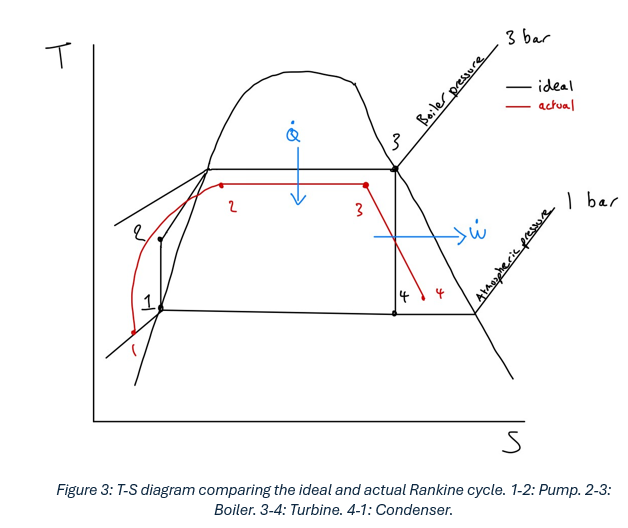 T
3 bar
Boiler pressure
ideal
actual
Q̇
3
2
3
2
Ẇ
1 bar
Atmospheric pressure
4
4
1
1
S
Figure 3: T-S diagram comparing the ideal and actual Rankine cycle. 1-2: Pump. 2-3:
Boiler. 3-4: Turbine. 4-1: Condenser.